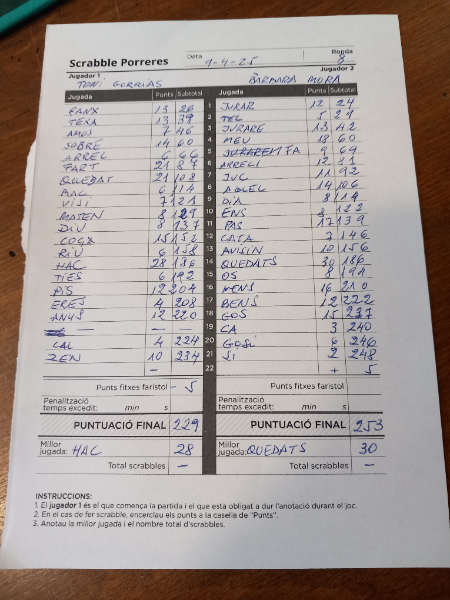 Scrabble Porreres Data 9-4-25 Ronda 8
Jugador 1 TONI GORRIAS Jugador 2 BÀRBARA MORA
Jugada Punts Subtotal Jugada Punts Subtotal
FANX 13 26 1 JURAR 12 24
TEXA 13 39 2 TEL 5 29
AMOS 7 46 3 JURARE 13 42
SOBRE 14 60 4 MEU 18 60
ARREL 6 66 5 FA 9 69
FART 21 87 6 ARRELI 12 81
QUEBAT 21 108 7 JUC 11 92
MAG 6 114 8 14 106
VISI 7 121 9 DIA 8 114
MATEN 8 129 10 ENS 8 122
DIU 8 137 11 PAS 17 139
COGX 15 152 12 CATA 7 146
RIU 6 158 13 AVISIN 10 156
HAC 28 186 14 QUEDATS 30 186
TIES 6 192 15 OS 8 194
PIS 12 204 16 MENS 16 210
ERES 4 208 17 BENS 12 222
ANYS 12 220 18 GOS 15 237
— — 19 CA 3 240
CAL 4 224 20 GOSI 6 246
ZEN 10 234 21 SI 2 248
— 22 + 5
Punts fitxes faristol - 5 Punts fitxes faristol
Penalització temps excedit: min s Penalització temps excedit: min s
PUNTUACIÓ FINAL 229 PUNTUACIÓ FINAL 253
Millor jugada: HAC 28 Millor jugada: QUEDATS 30
Total scrabbles — Total scrabbles —
INSTRUCCIONS:
1. El jugador 1 és el que comença la partida i el que està obligat a dur l'anotació durant el joc.
2. En el cas de fer scrabble, encercleu els punts a la casella de "Punts".
3. Anotau la millor jugada i el nombre total d'scrabbles.